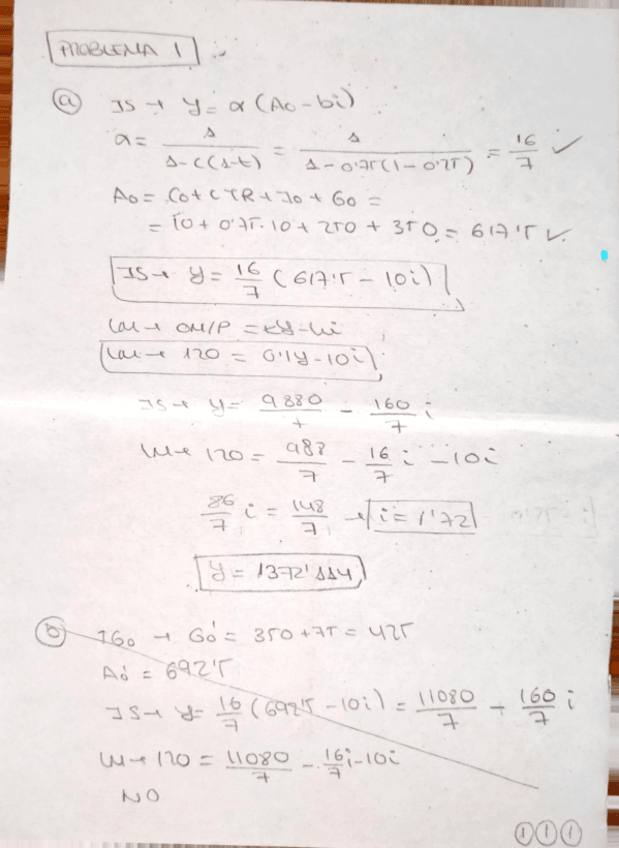 PROBLEMA 1
a) IS → Y = α (A0 - bi)
α = 1 / (1-c(1-t)) = 1 / (1-0'75(1-0'25)) = 16/7 ✓
A0 = C0 + cTR + I0 + G0 =
= 10 + 0'75·10 + 250 + 350 = 617'5 ✓.
IS → Y = 16/7 (617'5 - 10i)
LM → OM/P = kY - hi
LM → 120 = 0'1Y - 10i
IS → Y = 9880/7 - 160/7 i
LM → 120 = 988/7 - 16/7 i - 10i
86/7 i = 148/7 → i = 1'72
Y = 1372'114
b) ↑G0 → G0' = 350 + 75 = 425
A0' = 692'5
IS → Y = 16/7 (692'5 - 10i) = 11080/7 - 160/7 i
LM → 120 = 11080/7 - 16/7 i - 10i
NO
1 1 1